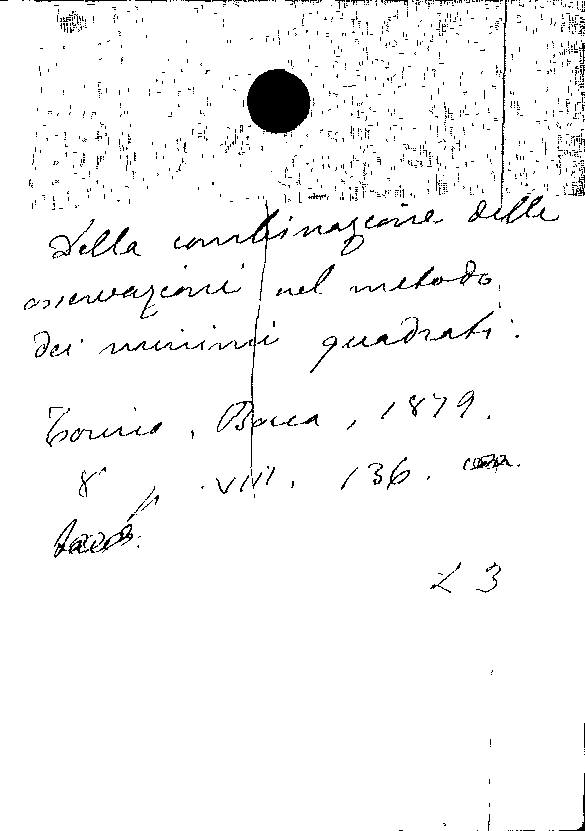 Della combinazione delle
osservazioni nel metodo
dei minimi quadrati.
Torino, Bocca, 1879.
8° p. VIII. 136.
L 3